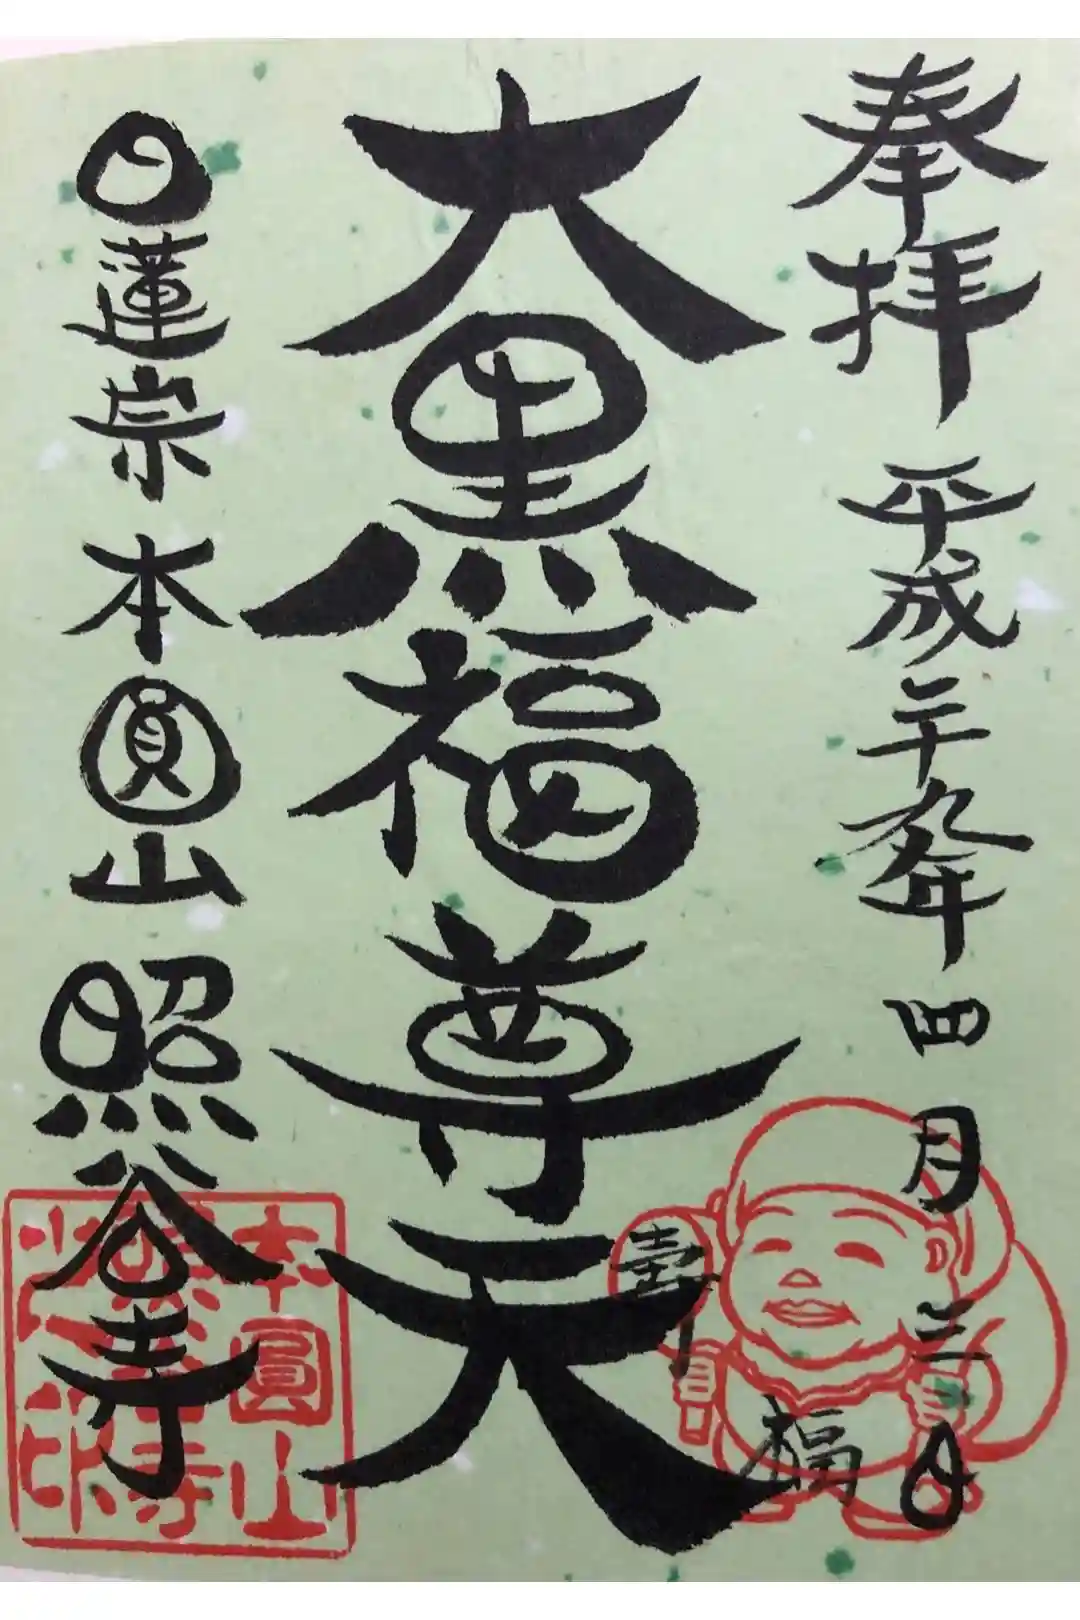 奉拝 平成二十九年四月三日
大黒福尊天
日蓮宗 本圓山 照谷寺
壽
福
本圓山
照谷寺
印